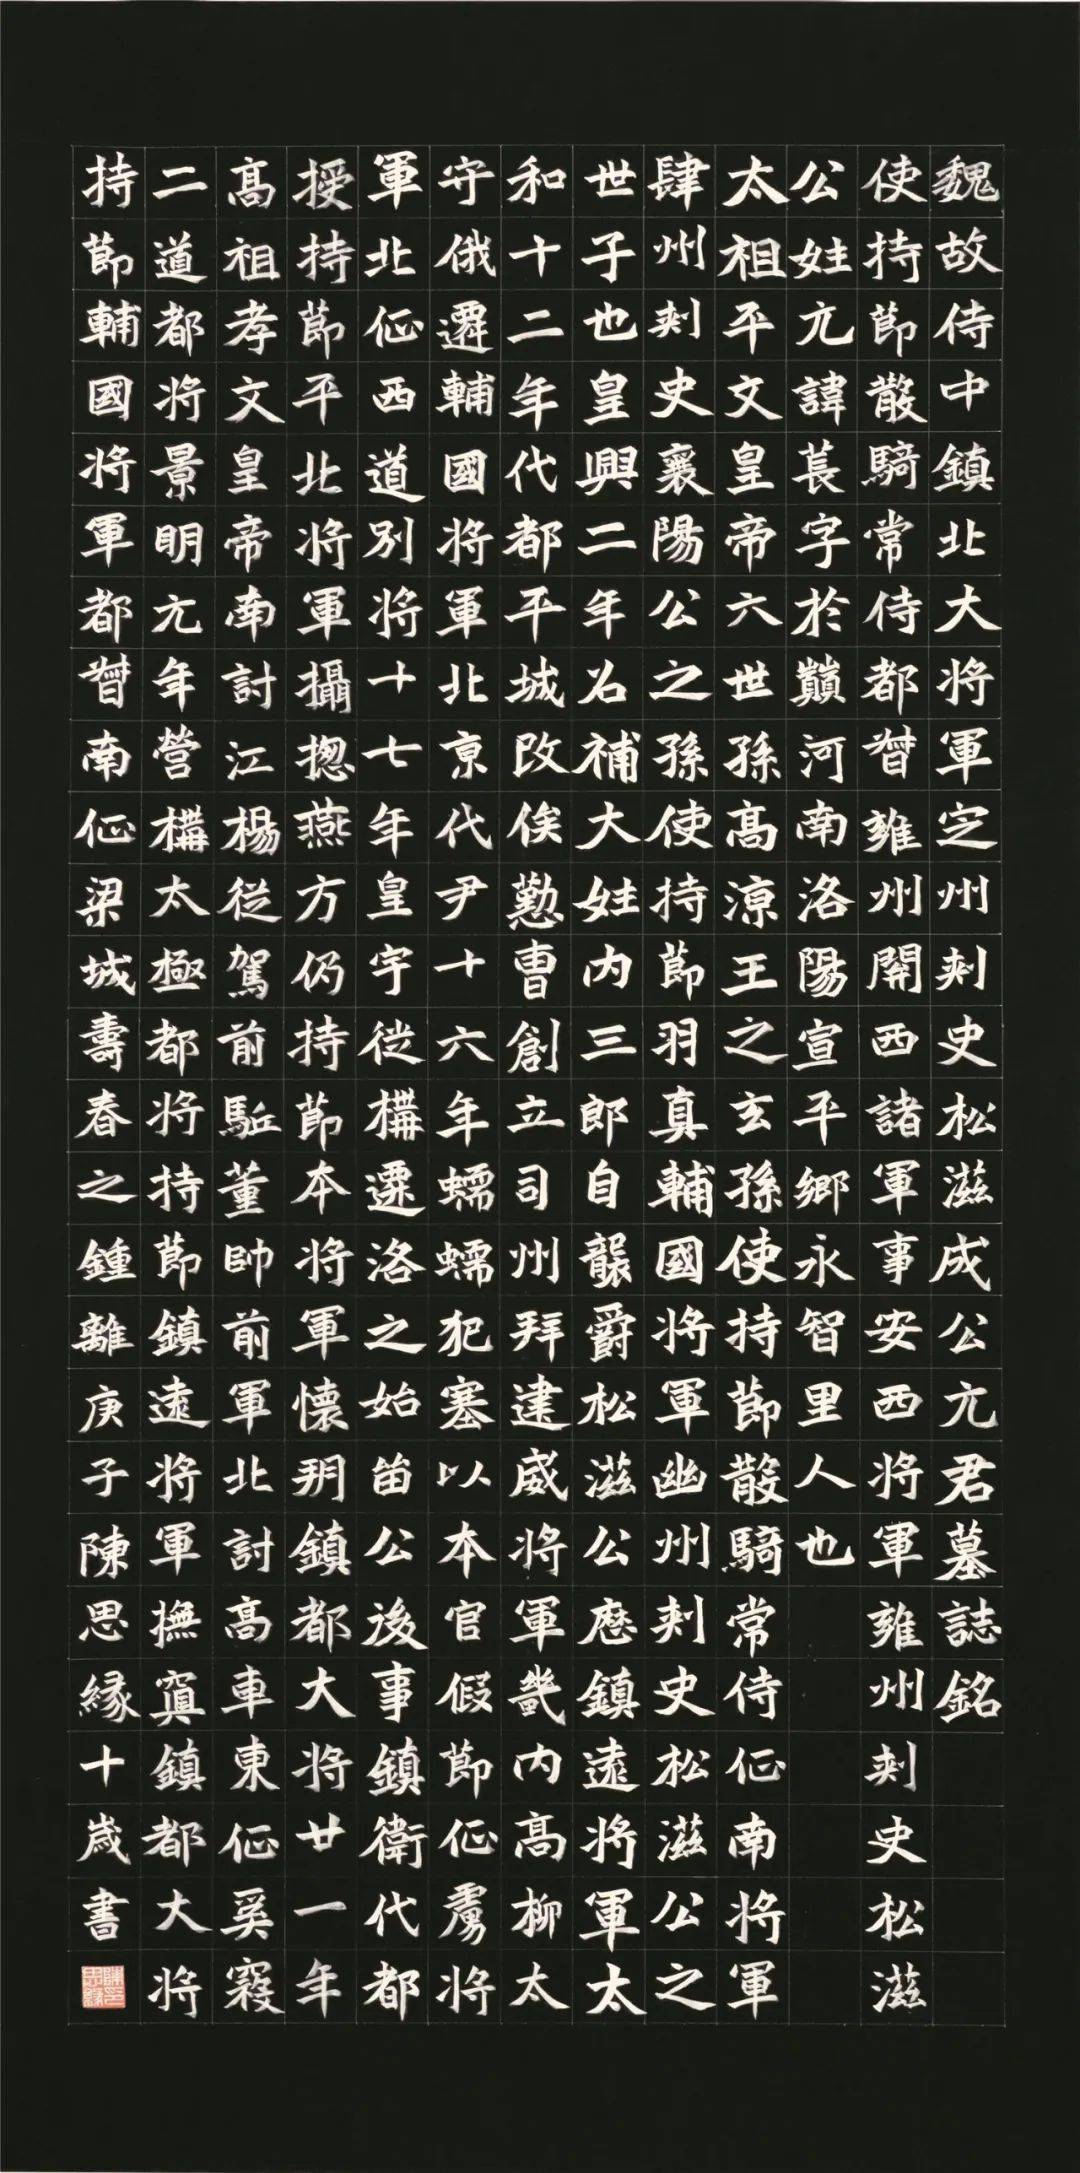 魏故侍中鎮北大将軍定州刺史松滋成公元君墓誌銘
使持節散騎常侍都督雍州關西諸軍事安西将軍雍州刺史松滋
公姓元諱萇字於巔河南洛陽宣平鄉永智里人也
太祖平文皇帝六世孫高涼王之玄孫使持節散騎常侍征南将軍
肆州刺史襄陽公之孫使持節羽真輔國将軍幽州刺史松滋公之
世子也皇興二年召補大姓内三郎自襲爵松滋公歷鎮遠将軍太
和十二年代都平城改俟懃曹創立司州拜建威将軍畿内高柳太
守俄遷輔國将軍北京代尹十六年蠕蠕犯塞以本官假節征虜将
軍北征西道別将十七年皇宇徙構遷洛之始留公後事鎮衛代都
授持節平北将軍攝揔燕方仍持節本将軍懷朔鎮都大将廿一年
高祖孝文皇帝南討江楊從駕前駈董帥前軍北討高車東征奚寇
二道都将景明元年營構太極都将持節鎮遠将軍撫冥鎮都大将
持節輔國将軍都督南征梁城壽春之鍾離庚子陳思緣十歲書